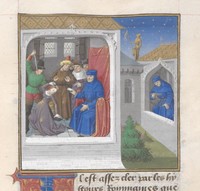 est assez cler par les hy
stoires Rommaines que